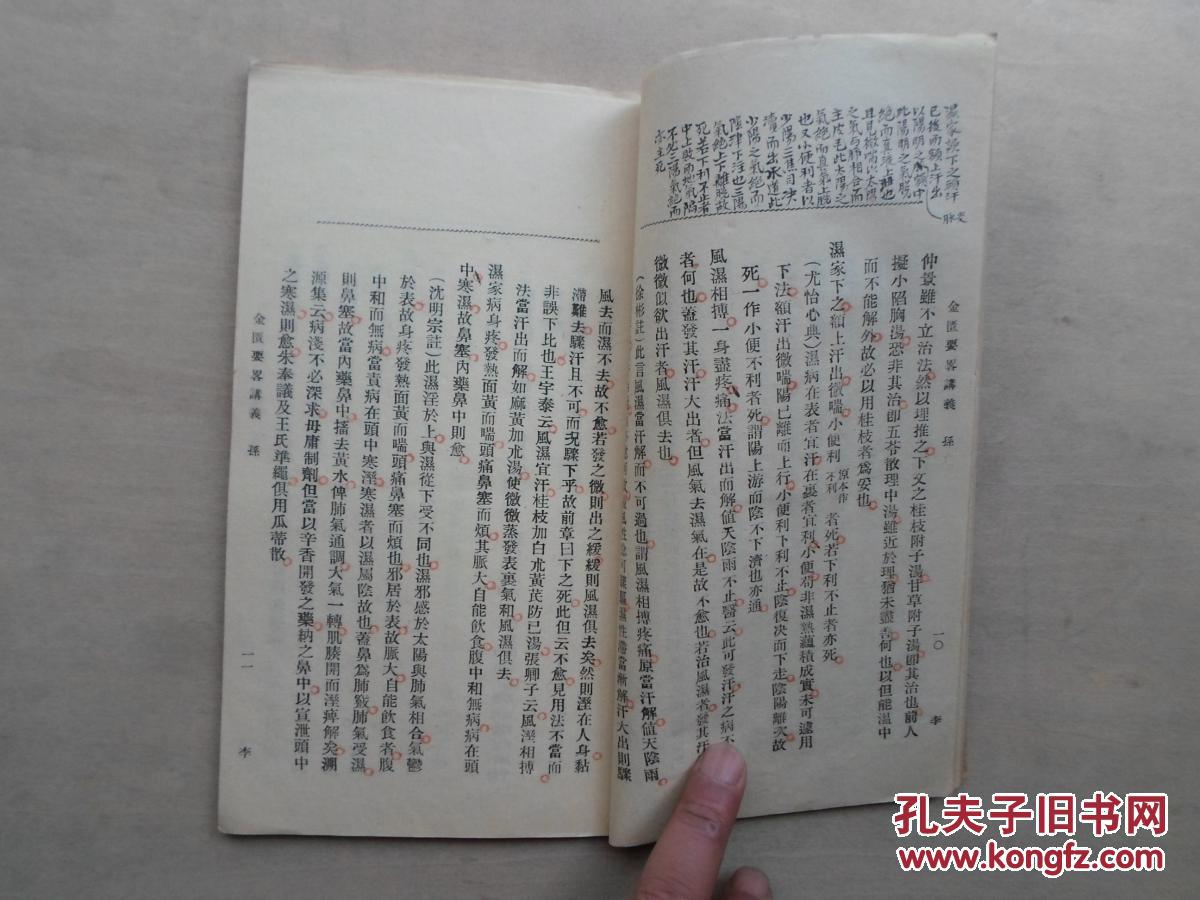 濕家誤下之頭汗
已後而額上汗出
以陽明之脈額中
此陽明之氣脫
絕而真液上越也
且見微喘以太陽
之氣与肺相合而
主皮毛此太陽之
氣絕而真氣上脫
也又小便利者以
少陽三焦司决
瀆而出水道此
少陽之氣絕而
陰津下注也三陽
氣絕上下離脫故
死若下利不止者
中上
不必三陽氣絕而
亦主死
金匱要畧講義 孫 一〇 李
仲景雖不立治法然以理推之下文之桂枝附子湯甘草附子湯卽其治也前人
擬小陷胸湯恐非其治卽五苓散理中湯雖近於理猶未盡善何也以但能溫中
而不能解外故必以用桂枝者爲妥也
濕家下之額上汗出微喘小便利原本作不利者死若下利不止者亦死
(尤怡心典)濕病在表者宜汗在裏者宜利小便苟非濕熱蘊積成實未可遽用
下法額汗出微喘陽已離而上行小便利下利不止陰復决而下走陰陽離決故
死一作小便不利者死謂陽上游而陰不下濟也亦通
風濕相搏一身盡疼痛法當汗出而解値天陰雨不止醫云此可發汗汗之病不
者何也蓋發其汗汗大出者但風氣去濕氣在是故不愈也若治風濕者發其汗
微微似欲出汗者風濕俱去也
(徐彬註)此言風濕當汗解而不可過也謂風濕相搏疼痛原當汗解値天陰雨
濕性滯當漸解汗大出則驟
風去而濕不去故不愈若發之微則出之緩緩則風濕俱去矣然則溼在人身黏
滯難去驟汗且不可而况驟下乎故前章曰下之死此但云不愈見用法不當而
非誤下比也王宇泰云風濕宜汗桂枝加白朮黃芪防已湯張卿子云風溼相搏
法當汗出而解如麻黃加朮湯使微微蒸發表裏氣和風濕俱去
濕家病身疼發熱面黃而喘頭痛鼻塞而煩其脈大自能飲食腹中和無病病在頭
中寒濕故鼻塞內藥鼻中則愈
(沈明宗註)此濕淫於上與濕從下受不同也濕邪感於太陽與肺氣相合氣鬱
於表故身疼發熱面黃而喘頭痛鼻塞而煩也邪居於表故脈大自能飲食者腹
中和而無病當責病在頭中寒溼寒濕者以濕屬陰故也蓋鼻爲肺竅肺氣受濕
則鼻塞故當內藥鼻中搐去黃水俾肺氣通調大氣一轉肌腠開而溼痺解矣溯
源集云病淺不必深求毋庸制劑但當以辛香開發之藥納之鼻中以宣泄頭中
之寒濕則愈朱奉議及王氏準繩俱用瓜蒂散
金匱要畧講義 孫 一一 李
孔夫子旧书网
www.kongfz.com